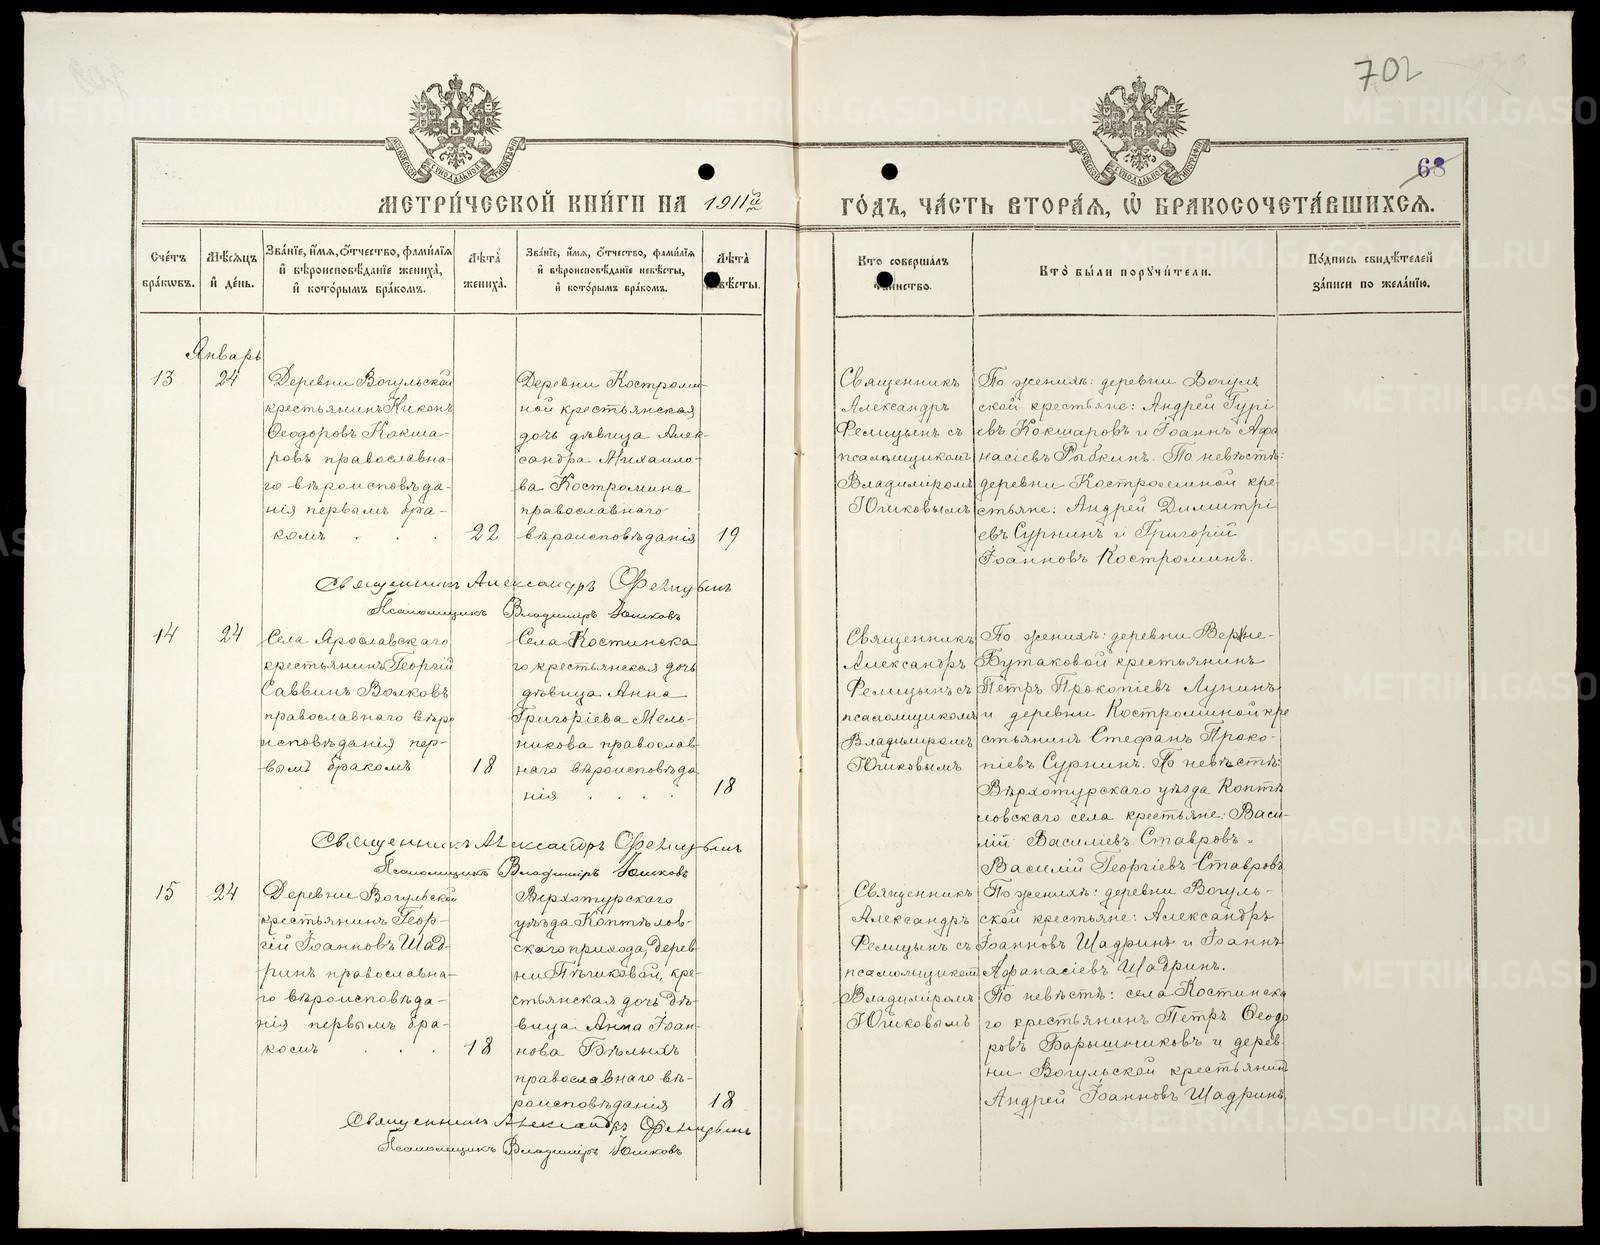 702
68
МЕТРИ́ЧЕСКОЙ КНИ́ГИ НА 1911й
ГО́ДЪ, ЧА́СТЬ ВТОРА́Я, Ѽ БРАКОСОЧЕТА́ВШИХСЯ.
Сче́тъ бра́ковъ.
Мѣ́сяцъ и҆ де́нь.
Зва́нїе, и҆́мя, ѻ҆́тчество, фами́лїя и҆ вѣроисповѣ́данїе жениха́, и҆ кото́рымъ бра́комъ.
Лѣ́та жениха́.
Зва́нїе, и҆́мя, ѻ҆́тчество, фами́лїя и҆ вѣроисповѣ́данїе невѣ́сты, и҆ кото́рымъ бра́комъ.
Лѣ́та невѣ́сты.
Кто̀ соверша́лъ та́инство.
Кто̀ бы́ли поручи́тели.
По́дпись свидѣ́телей за́писи по жела́нїю.
Январь
13
24
Деревни Вогульской
крестьянинъ Никонъ
Ѳеодоровъ Какша-
ровъ православна-
го вѣроисповѣда-
нія первымъ бра-
комъ . . .
22
Деревни Костроми-
ной крестьянская
дочь дѣвица Алек-
сандра Михаило-
ва Костромина
православнаго
вѣроисповѣданія
19
Священникъ
Александръ
Фелицынъ съ
псаломщикомъ
Владиміромъ
Юшковымъ
По женихѣ: деревни Вогуль
ской крестьяне: Андрей Гурі
евъ Кокшаровъ и Іоаннъ Афа
насіевъ Рыбкинъ. По невѣстѣ:
деревни Костроминой кре-
стьяне: Андрей Димитрі
евъ Сурнинъ и Григорій
Іоанновъ Костроминъ.
Священникъ Александръ Фелицынъ
Псаломщикъ Владиміръ Юшковъ
14
24
Села Ярославскаго
крестьянинъ Георгій
Саввинъ Волковъ
православнаго вѣро
исповѣданія пер-
вымъ бракомъ
18
Села Костинска
го крестьянская дочь
дѣвица Анна
Григоріева Мель-
никова православ-
наго вѣроисповѣда
нія . . . .
18
Священникъ
Александръ
Фелицынъ съ
псаломщикомъ
Владиміромъ
Юшковымъ
По женихѣ: деревни Верхне-
Бутаковой крестьянинъ
Петръ Прокопіевъ Лунинъ
и деревни Костроминой кре
стьянинъ Стефанъ Проко-
піевъ Сурнинъ. По невѣстѣ:
Верхотурскаго уѣзда Коптѣ
ловскаго села крестьяне: Васи-
лій Василіевъ Ставровъ и
Василій Георгіевъ Ставровъ
Священникъ Александръ Фелицынъ
Псаломщикъ Владиміръ Юшковъ
15
24
Деревни Вогульской
крестьянинъ Геор-
гій Іоанновъ Шад-
ринъ православна-
го вѣроисповѣда-
нія первымъ бра-
комъ . . .
18
Верхотурскаго
уѣзда Коптѣлов-
скаго прихода, дерев
ни Пѣшковой, кре-
стьянская дочь дѣ-
вица Анна Іоан-
нова Бѣлыхъ
православнаго вѣ-
роисповѣданія
18
Священникъ
Александръ
Фелицынъ съ
псаломщикомъ
Владиміромъ
Юшковымъ
По женихѣ: деревни Вогуль-
ской крестьяне: Александръ
Іоанновъ Шадринъ и Іоаннъ
Афанасіевъ Шадринъ.
По невѣстѣ: села Костинска
го крестьянинъ Петръ Ѳеодо
ровъ Барышниковъ и дерев
ни Вогульской крестьянинъ
Андрей Іоанновъ Шадринъ.
Священникъ Александръ Фелицынъ
Псаломщикъ Владиміръ Юшковъ
METRIKI.GASO-URAL.RU